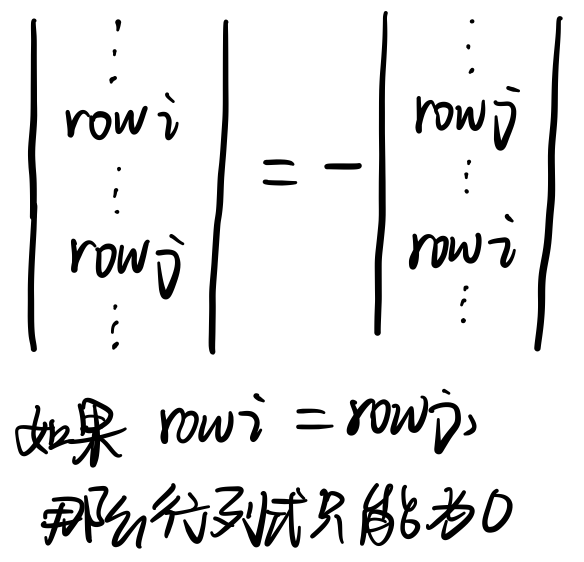 | ⋮ row i ⋮ row j ⋮ | = - | ⋮ row j ⋮ row i ⋮ |
如果 row i = row j,
那么行列式只能为0